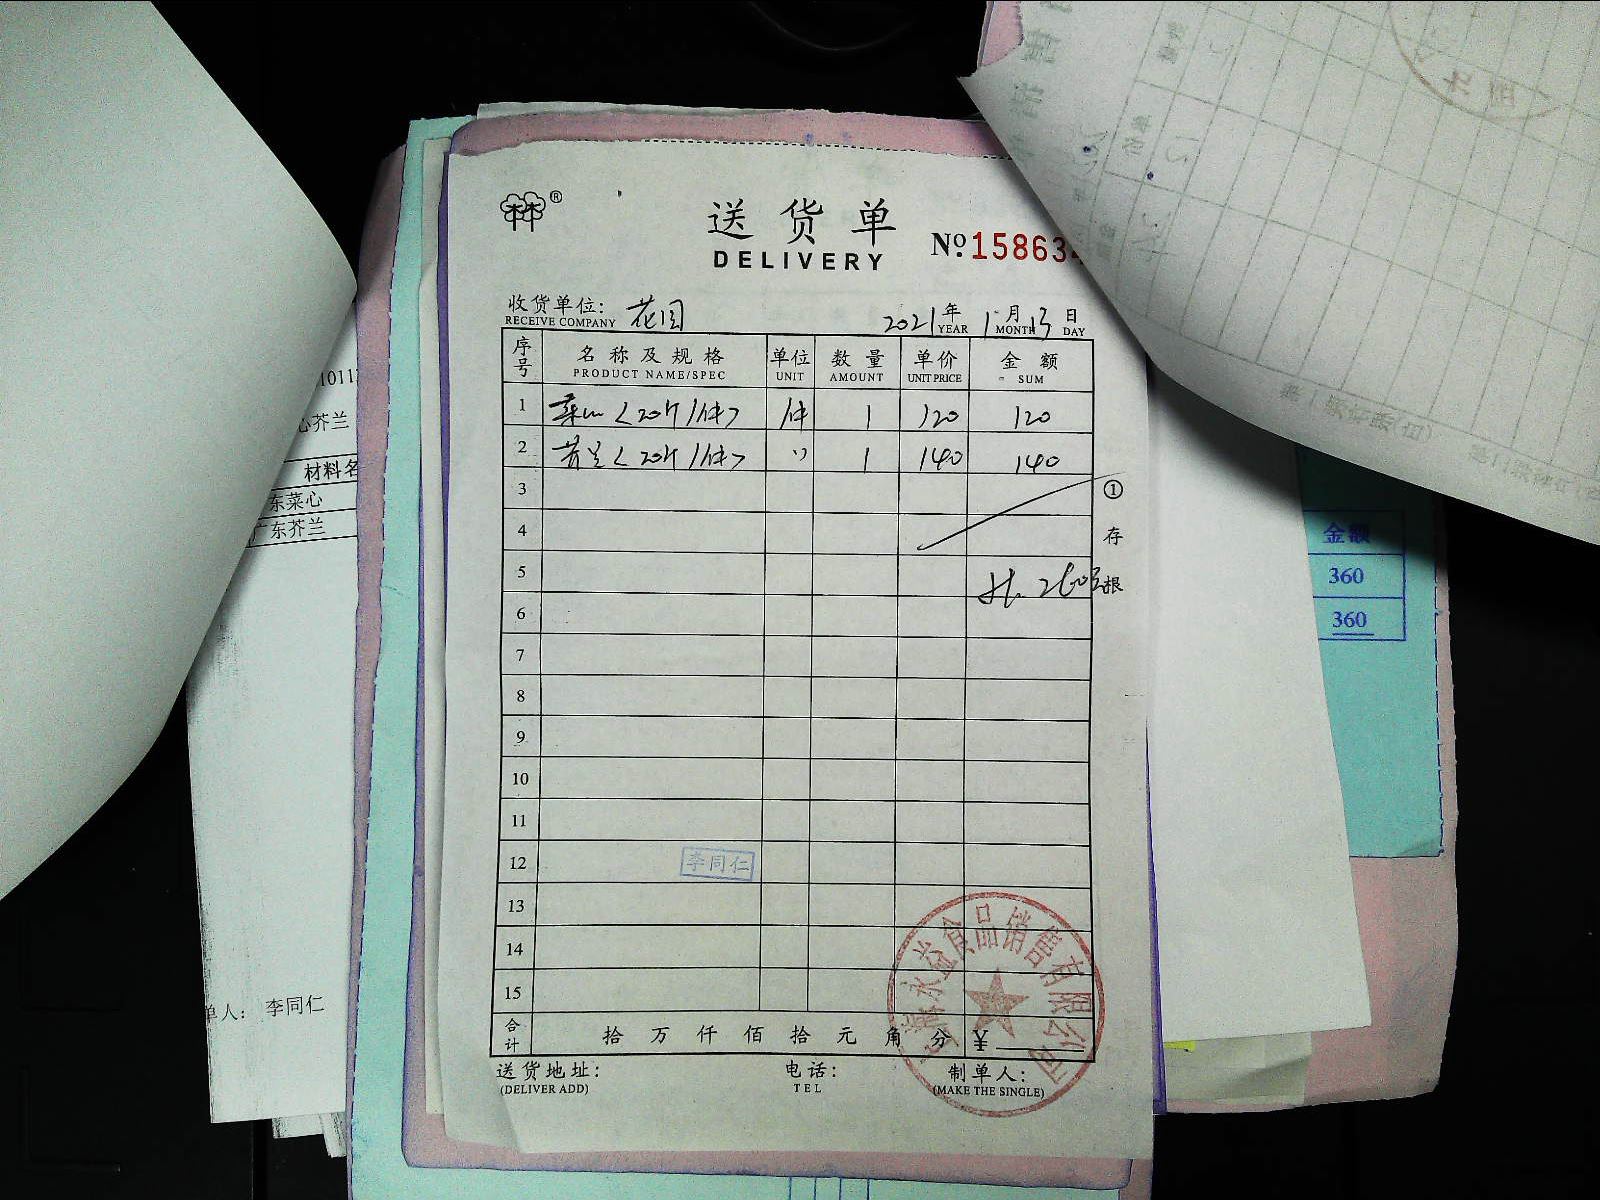 送货单
DELIVERY
№:15863
收货单位: 花园
RECEIVE COMPANY
2021年1月13日
YEAR MONTH DAY
序号 名称及规格 单位 数量 单价 金额
PRODUCT NAME/SPEC UNIT AMOUNT UNIT PRICE SUM
1 菜心<20斤/件> 件 1 120 120
2 芥兰<20斤/件> 〃 1 140 140
3
4
5 共260元
6
7
8
9
10
11
12 李同仁
13
14
15
合计 拾万仟佰拾元角分 ¥
送货地址: 电话: 制单人:
(DELIVER ADD) TEL (MAKE THE SINGLE)
①存根
永益食品销售有限公司
1011
心芥兰
材料名
东菜心
广东芥兰
单人: 李同仁
金额
360
360